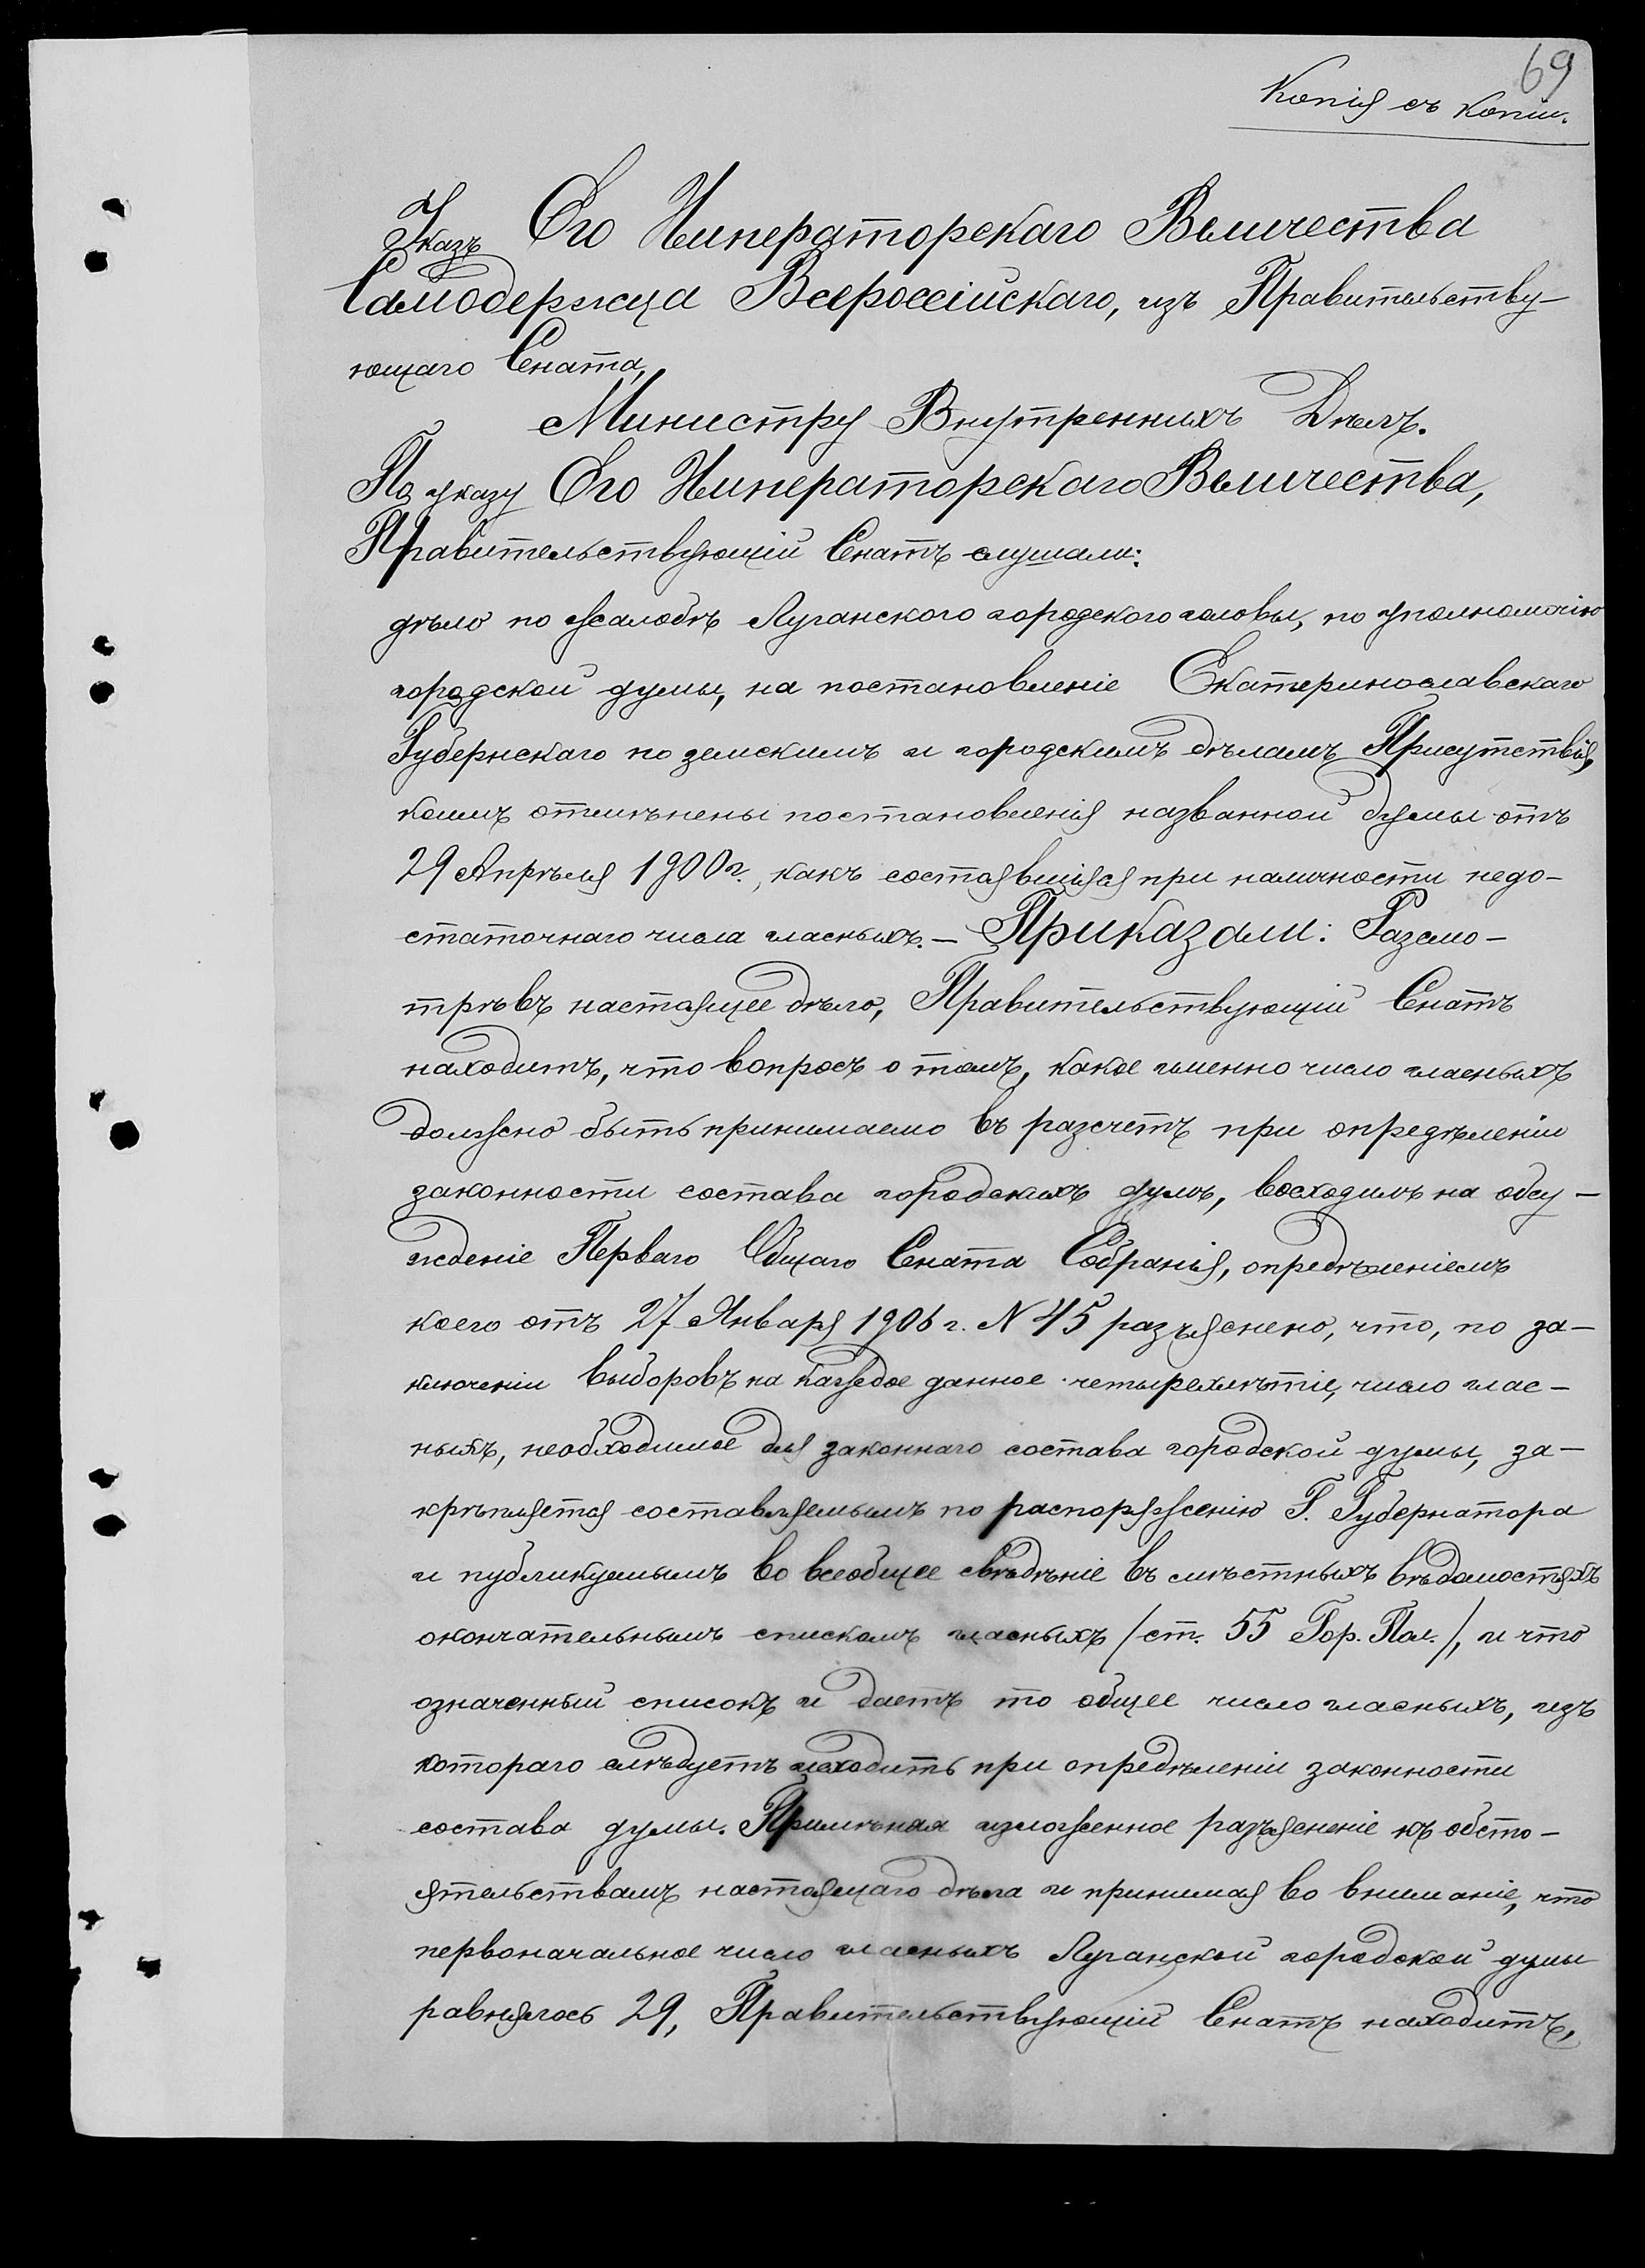 69
Копія съ копіи.
Указъ Его Императорскаго Величества
Самодержца Всероссійскаго, изъ Правительству-
ющаго Сената,
Министру Внутреннихъ Дѣлъ.
По указу Его Императорскаго Величества,
Правительствующій Сенатъ слушали:
дѣло по жалобѣ Луганского городского головы, по уполномочію
городской думы, на постановленіе Екатеринославскаго
Губернскаго по земскимъ и городскимъ дѣламъ Присутствія,
коимъ отмѣнены постановленія названной думы отъ
29 Апрѣля 1900 г., какъ состоявшіяся при наличности недо-
статочнаго числа гласныхъ. – Приказали: Разсмо-
трѣвъ настоящее дѣло, Правительствующій Сенатъ
находитъ, что вопросъ о томъ, какое именно число гласныхъ
должно быть принимаемо въ разсчетъ при опредѣленіи
законности состава городскихъ думъ, восходилъ на обсу-
жденіе Перваго Общаго Сената Собранія, опредѣленіемъ
коего отъ 27 Января 1906 г. N 45 разъяснено, что, по за-
ключеніи выборовъ на каждое данное четырехлѣтіе, число глас-
ныхъ, необходимое для законнаго состава городской думы, за-
крѣпляется составляемымъ по распоряженію Г. Губернатора
и публикуемымъ во всеобщее свѣдѣніе въ мѣстныхъ вѣдомостяхъ
окончательнымъ спискомъ гласныхъ /ст. 55 Гор. Пол./, и что
означенный списокъ и даетъ то общее число гласныхъ, изъ
котораго слѣдуетъ исходить при опредѣленіи законности
состава думы. Примѣняя изложенное разъясненіе къ обсто-
ятельствамъ настоящаго дѣла и принимая во вниманіе, что
первоначальное число гласныхъ Луганской городской думы
равнялось 29, Правительствующій Сенатъ находитъ,